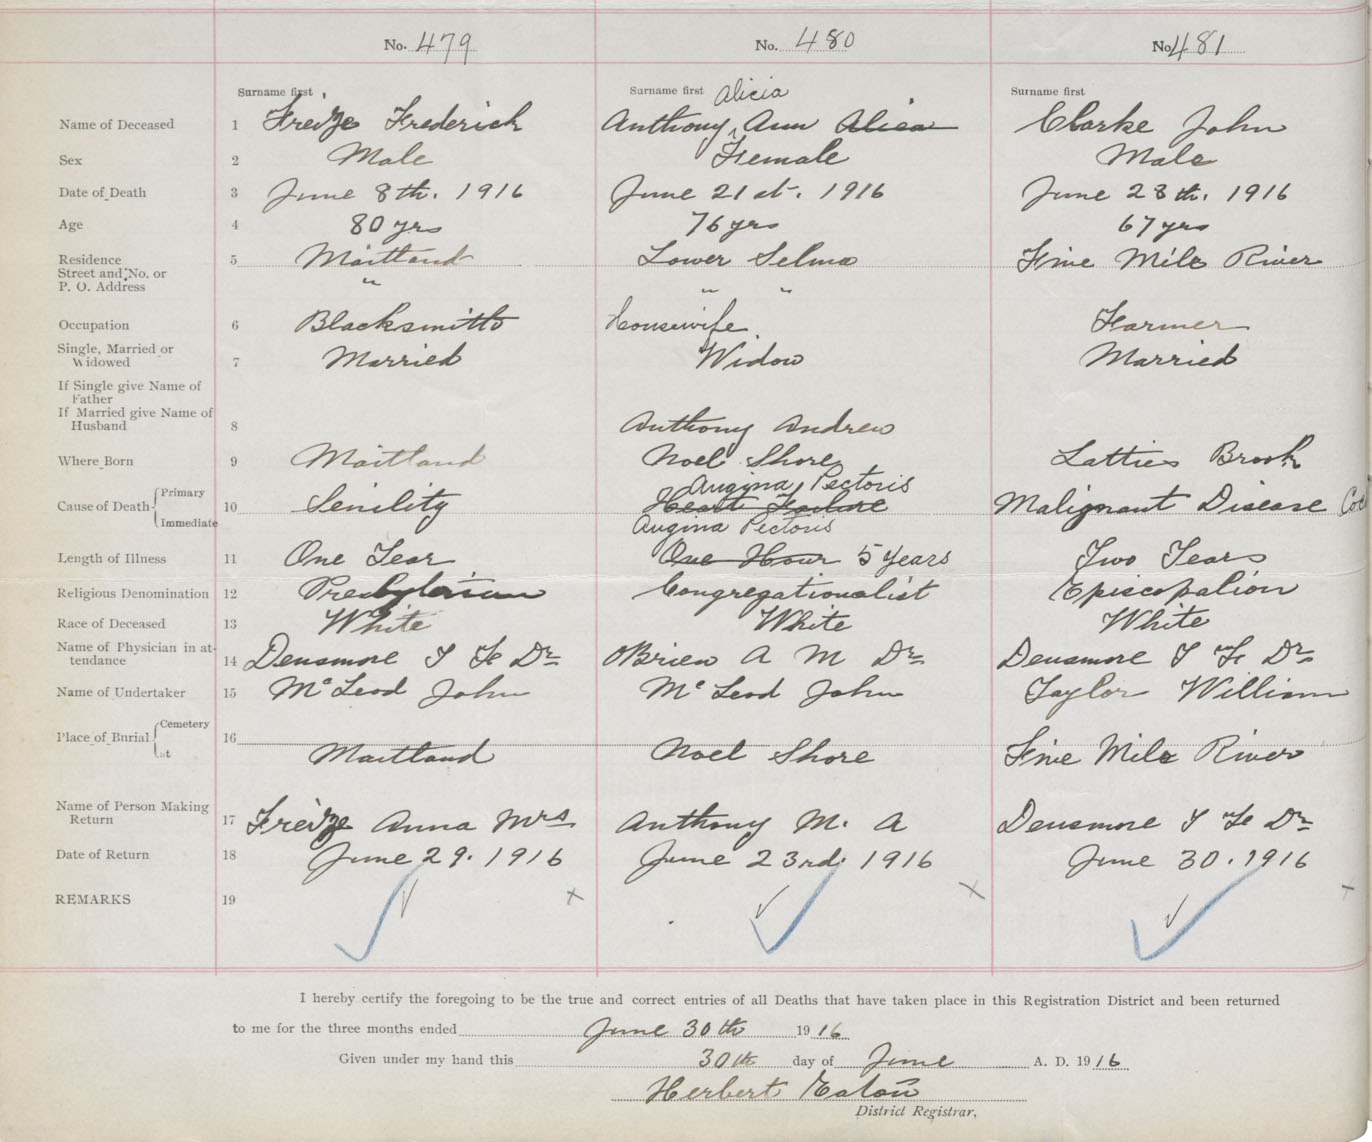 No. 479 No. 480 No. 481
Surname first Surname first Alicia Surname first
Name of Deceased 1 Freize Frederick Anthony, Ann Alicia Clarke John
Sex 2 Male Female Male
Date of Death 3 June 8th. 1916 June 21st. 1916 June 28th. 1916
Age 4 80 yrs 76 yrs 67 yrs
Residence 5 Maitland Lower Selma Five Mile River
Street and No. or
P. O. Address " " "
Occupation 6 Blacksmith Housewife Farmer
Single, Married or
Widowed 7 Married Widow Married
If Single give Name of
Father
If Married give Name of
Husband 8 Anthony Andrew
Where Born 9 Maitland Noel Shore Latties Brook
Angina Pectoris
Cause of Death Primary Immediate 10 Senility Heart Failure Malignant Disease
Angina Pectoris
Length of Illness 11 One Year One Hour 5 Years Two Years
Religious Denomination 12 Presbyterian Congregationalist Episcopalion
Race of Deceased 13 White White White
Name of Physician in at-
tendance 14 Densmore F Dr OBrien A M Dr Densmore F Dr
Name of Undertaker 15 McLeod John McLeod John Taylor William
Place of Burial Cemetery at 16 Maitland Noel Shore Five Mile River
Name of Person Making
Return 17 Freize Anna Mrs Anthony M. A Densmore F Dr
Date of Return 18 June 29. 1916 June 23rd. 1916 June 30. 1916
REMARKS 19
I hereby certify the foregoing to be the true and correct entries of all Deaths that have taken place in this Registration District and been returned
to me for the three months ended June 30th 1916
Given under my hand this 30th day of June A. D. 1916
Herbert Eaton
District Registrar.